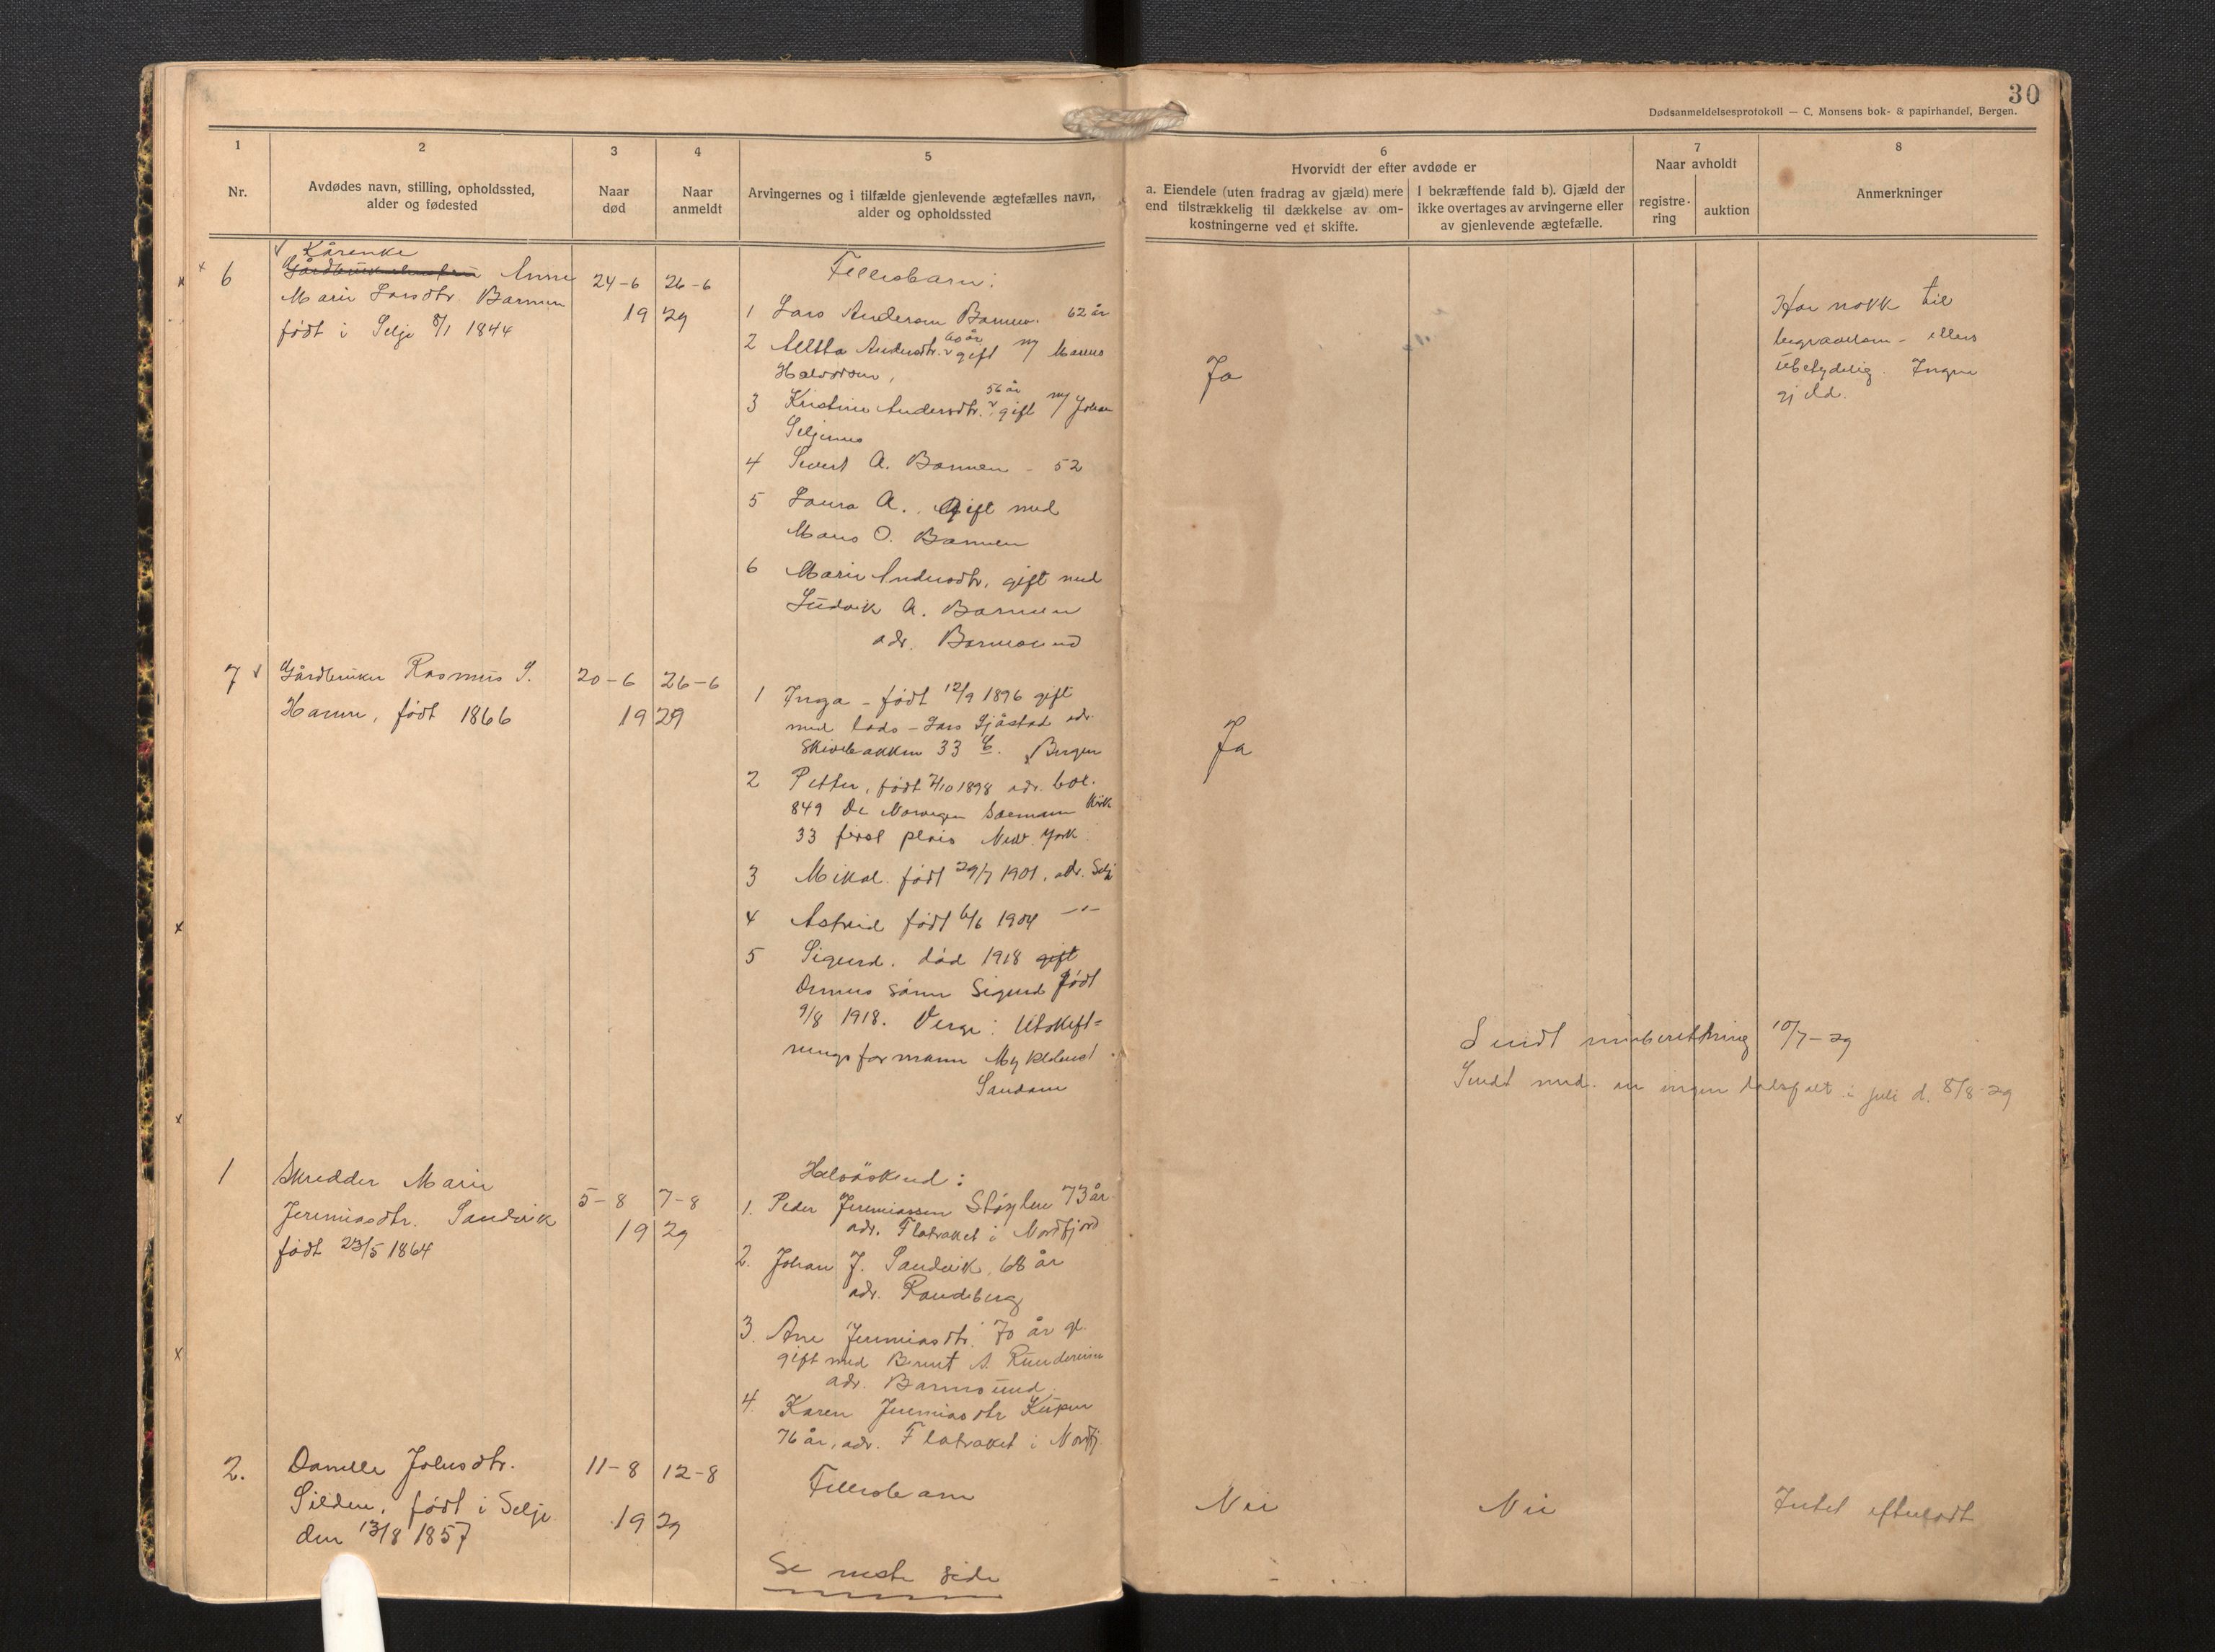 30
Dødsanmeldelsesprotokoll — C. Monsens bok- & papirhandel, Bergen.
1
2
3
4
5
6
7
8
Nr.
Avdødes navn, stilling, opholdssted,
alder og fødested
Naar
død
Naar
anmeldt
Arvingernes og i tilfælde gjenlevende ægtefælles navn,
alder og opholdssted
Hvorvidt der efter avdøde er
a. Eiendele (uten fradrag av gjæld) mere
end tilstrækkelig til dækkelse av om-
kostningerne ved et skifte.
I bekræftende fald b). Gjæld der
ikke overtages av arvingerne eller
av gjenlevende ægtefælle.
Naar avholdt
registre-
ring
auktion
Anmerkninger
6
Kårenke
Anne
Marie Larsdtr. Barmen
født i Selje 8/1 1844
24-6 26-6
1929
Fellesbarn:
1 Lars Andersen Barmen. 62 år
2 Andersdtr. 60 år gift m/ Marius
Halvorsen,
3 Kristine Andersdtr. 56 år gift m/ Johan
Seljenes
4 Sivert A. Barmen - 52
5 Laura A. gift med
Mons O. Barmen
6 Marie Andersdtr. gift med
Ludvik A. Barmen
adr. Barmsund
Ja
Har nokk til
begravelsen - ellers
ubetydelig. Ingen
gjeld.
7 Gårdbruker Rasmus S.
Hamre, født 1866
20-6 26-6
1929
1 Inga - født 12/9 1896 gift
med lods - Lars Sjåstad adr.
Skivebakken 33 C. Bergen
2 Petter, født 7/10 1898 adr. box.
849 De Norwegen Soemann Kirk
33 first plais New York
3 Mikal. født 29/7 1901. adr. Selje
4 Astrid født 6/6 1904 -"-
5 Sigurd. død 1918 gift
Dennes sønn Sigurd født
9/8 1918. Verge: Utskift=
ningsformann Myklebust
Sandane
Ja
Sendt innberetning 10/7-29
Sendt med. om ingen dødsfall i juli d. 8/8-29
1 Skredder Marie
Jeremiasdtr. Sandvik
født 23/5 1864
5-8 7-8
1929
Halvsøskend:
1. Peder Jeremiassen Støylen 73 år
adr. Flatraket i Nordfjord
2. Johan J. Sandvik, 68 år
adr. Raudeberg
3. Ane Jeremiasdtr. 70 år gl.
gift med Bernt A. Rundereim
adr. Barmsund.
4. Karen Jeremiasdtr
76 år, adr. Flatraket i Nordfj
2. Danelle Johnsdtr.
Silden, født i Selje
den 13/8 1857
11-8 12-8
1929
Fellesbarn
Se neste side
Nei
Nei
Intet efterlatt